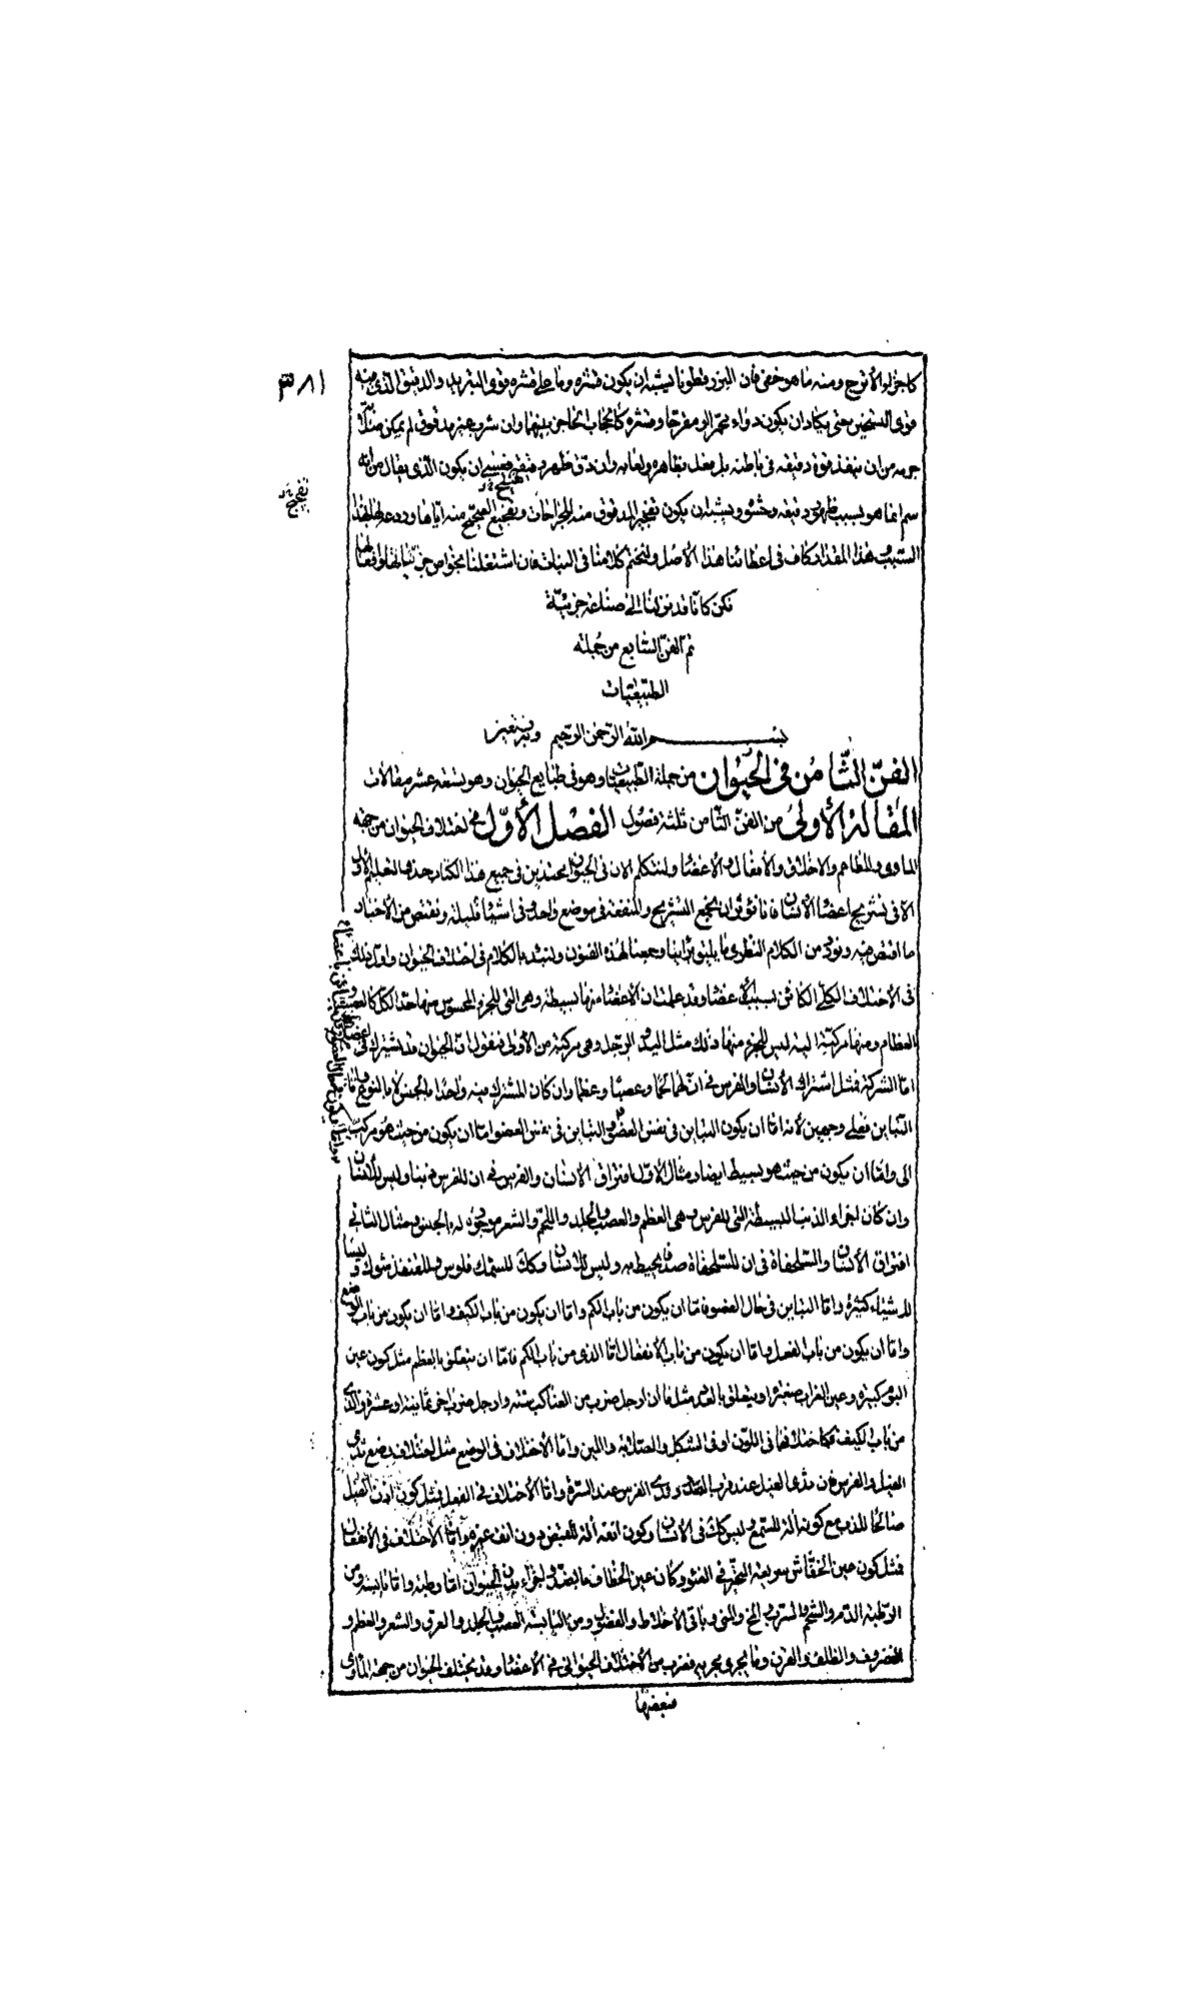 ٣٨١
كاجزاء الأترج ومنه ما هو خفى فان البزرقطونا يشبه ان يكون قشره وما على قشره قوى التبريد والدقيق الذى فيه
قوى التسخين حتى يكاد ان يكون دواء محمرا او مقرحا وقشره كالحجاب الحاجز بينهما وان شرب غير مدقوق لم يمكن
جرمه من ان ينفذ قوة دقيقه فى باطنه بل فعل بظاهره ولعابه وان دق ظهر دقيقه فيشبه ان يكون الذى يقال من انه
سم انما هو بسبب ظهور دقيقه وحشوه ويشبه ان يكون تفجير المدقوق منه للجراحات وتفجيج الصحيح منه اياها وردعه لها لهذا
السبب هذا المقدار كاف فى اعطائنا هذا الأصل ولنختم كلامنا فى النبات فان اشتغلنا بخواص جزئياتها وافعالها
نكن كانا قد نزلنا الى صناعة جزئيّة
تمّ الفنّ السّابع من جملة
الطّبيعيّات
بسم الله الرّحمن الرّحيم وبه نستعين
الفنّ الثّامن فى الحيوان من جملة الطّبيعيّات وهو فى طبايع الحيوان وهو تسعة عشر مقالات
المقالة الأولى من الفنّ الثّامن ثلثة فصول الفصل الأوّل فى اختلاف الحيوان من جهة
المأوى والمطاعم والاخلاق والأفعال والأعضاء ولنتكلم الان فى الحيوان محتذين فى جميع هذا الكتاب حذو التعليم الأول
الا فى تشريح اعضاء الأنسان فانا نؤثر ان نجمع التشريح والمنفعة فى موضع واحد وفى اشياء قليلة ونقتص من الأخبار
ما اقتص فيه ونورد من الكلام النظرى ما يليق بترتيبنا وجمعنا لهذه الفنون ولنبتدء بالكلام فى اختلاف الحيوان واول ذلك
فى الأختلاف الكلّى الكائن بسبب الأعضاء وقد علمت ان الأعضاء منها بسيطة وهى التى للجزء المحسوس منها حدّ الكلّ كالعصب و
العظام ومنها مركبّة البتة ليس للجزء منها ذلك مثل اليد والرّجل وهى مركبة من الأولى فنقول انّ الحيوان قد يشترك فى
امّا الشركة فمثل اشتراك الأنسان والفرس فى انّ لهما لحما وعصبا وعظما وان كان المشترك فيه واحدا بالجنس لا بالنوع وامّا
التباين فعلى وجهين لأنه امّا ان يكون التباين فى نفس العضو التباين فى نفس العضو امّا ان يكون من حيث هو مركب
الى وامّا ان يكون من حيث هو بسيط ايضا ومثال الأول افتراق الأنسان والفرس فى ان للفرس ذنبا وليس للأنسان
وان كان اجزاء الذنب البسيطة التى للفرس وهى العظم والعصب والجلد واللحم والشعر موجودة له بالجنس ومثال الثانى
افتراق الأنسان والسّلحفاة فى ان للسّلحفاة صدفا يحيط به وليس للأنسان وكك للسّمك فلوس وللقنفذ شوك وليسا
لأشياء كثيرة وامّا التباين فى حال العضو فامّا ان يكون من باب الكم وامّا ان يكون من باب الكيف وامّا ان يكون من باب الوضع
وامّا ان يكون من باب الفعل وامّا ان يكون من باب الأنفعال امّا الذى من باب الكم فامّا ان يتعلق بالعظم مثل كون عين
البوم كبيرة وعين العقاب صغيرة او يتعلق بالعدد مثل ان ارجل ضرب من العناكب ستة وارجل ضرب اخر ثمانية او عشرة والذى
من باب الكيف فكاختلافها فى اللّون او فى الشكل والصلابة واللين وامّا الأختلاف فى الوضع مثل اختلاف وضع ثدى
الفيل والفرس فان ثدى الفيل عند قرب الصّدر وثدى الفرس عند السّرة وامّا الأختلاف فى الفعل فمثل كون اذن الفيل
صالحا للذب مع كونه آلة للسّمع وليس كك فى الأنسان وكون انفه آلة للقبض دون انف غيره وامّا الأختلاف فى الأنفعال
فمثل كون عين الخفّاش سريعة التحيّر فى الضوء وكان عين الخطاف بالضد واجزاء بدن الحيوان امّا رطبة وامّا يابسة ومن
الرّطبة الدّم والشحم والثرب والمخ والمنى وباقى الأخلاط والفضول ومن اليابسة العصب والجلد والعرق والشعر والعظم و
الغضروف والظلف والقرن وما يجرى مجريه فضرب من الأختلاف الحيوانى فى الأعضاء وقد يختلف الحيوان من جهة المأوى
فبعضها